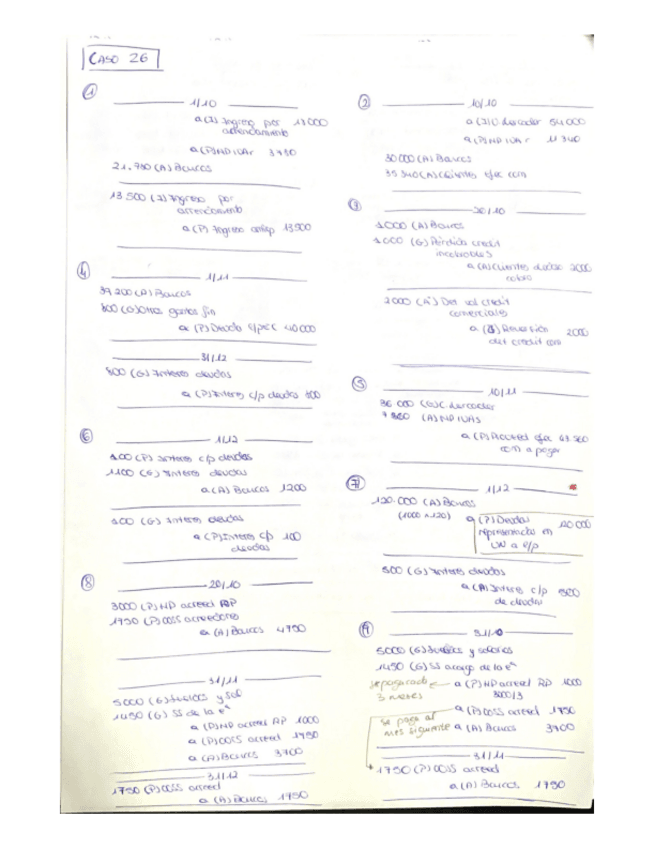 CASO 26
①
1/10
a (I) Ingreso por 18000
arrendamiento
a (P) HP IVAr 3780
21.780 (A) Bancos
13 500 (I) Ingreso por
arrendamiento
a (P) Ingreso antip 13500
④
1/11
39200 (A) Bancos
800 (G) Otros gastos fin
a (P) Deuda c/p ec 40000
31/12
800 (G) Intereses deudas
a (P) Interes c/p deudas 800
⑥
1/12
100 (P) Interes c/p deudas
1100 (G) Interes deudas
a (A) Bancos 1200
100 (G) Interes deudas
a (P) Interes c/p 100
deudas
⑧
20/10
3000 (P) HP acreed RP
1750 (P) OOSS acreedores
a (A) Bancos 4750
31/11
5000 (G) Sueldos y sal
1450 (G) SS de la eª
a (P) HP acreed RP 1000
a (P) OOSS acreed 1750
a (A) Bancos 3700
31/12
1750 (P) OOSS acreed
a (A) Bancos 1750
②
10/10
a (I) V mercader 54000
a (P) HP IVAr 11 340
30 000 (A) Bancos
35 340 (A) Clientes efec com
③
20/10
1000 (A) Bancos
1000 (G) Pérdida credit
incobrables
a (A) Clientes dudoso 2000
cobro
2000 (A) Det val credit
comerciales
a (I) Reversión 2000
det credit com
⑤
10/11
36 000 (G) C mercader
(A) HP IVAs
a (P) Proveed efec 43.560
com a pagar
⑦
1/12
120.000 (A) Bancos
(1000 x 120)
a (P) Deudas
representadas en
a c/p
500 (G) Interes deudas
a (P) Interes c/p 500
de deudas
⑨
31/10
5000 (G) Sueldos y salarios
1450 (G) SS a cargo de la eª
se pagará de a (P) HP acreed RP 1000
3 meses 3000/3
a (P) OOSS acreed 1750
se paga al
mes siguiente a (A) Bancos 3700
31/11
1750 (P) OOSS acreed
a (A) Bancos 1750